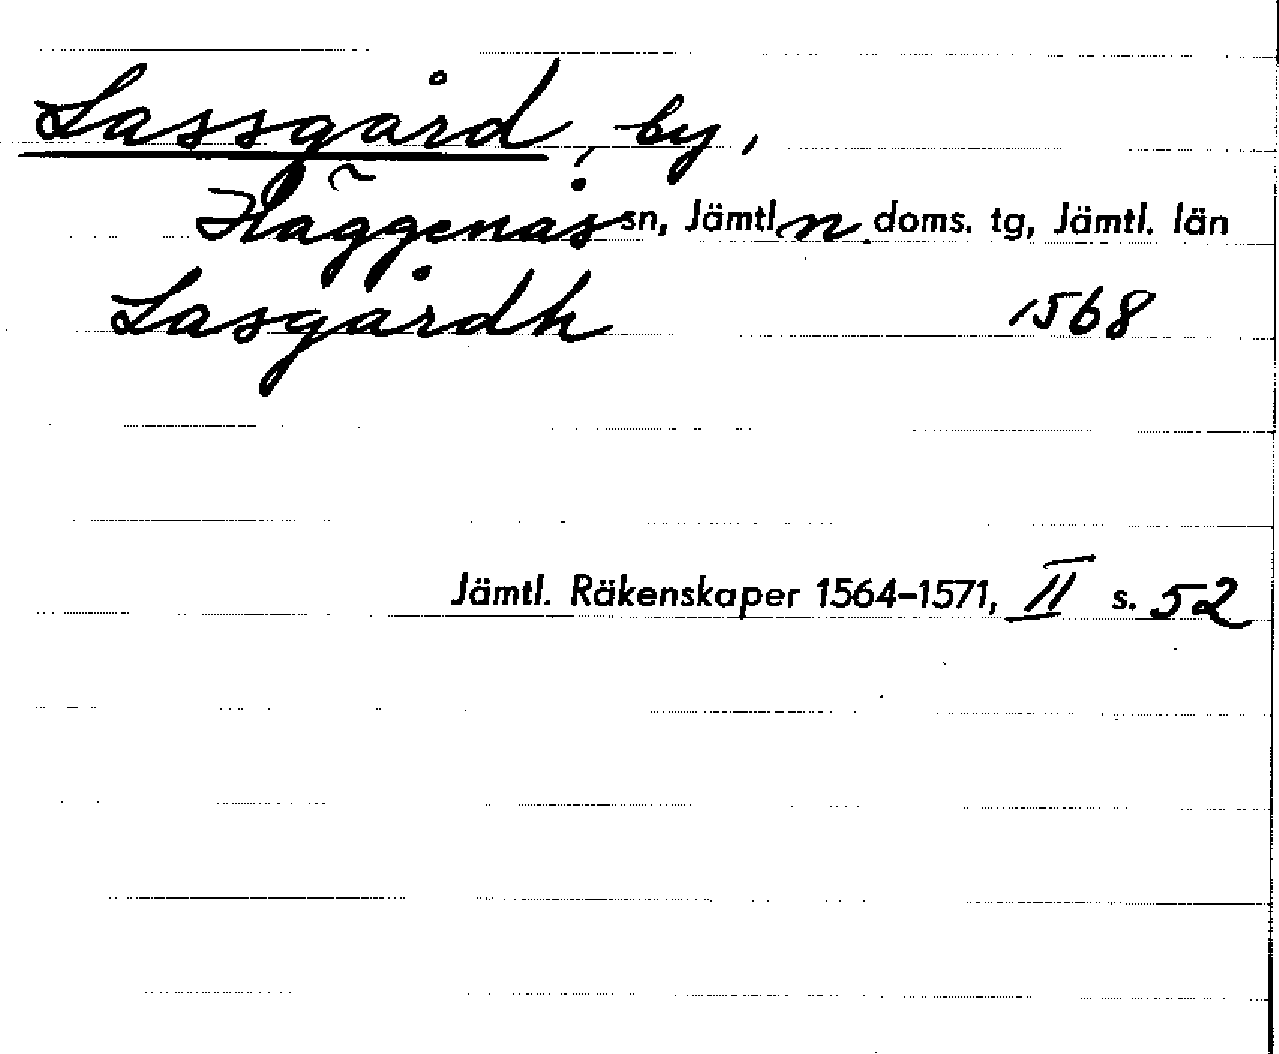 Lassgård, by,
Häggenås sn, Jämtl. n. doms. tg, Jämtl. län
Lasgårdh 1568
Jämtl. Räkenskaper 1564-1571, II s. 52